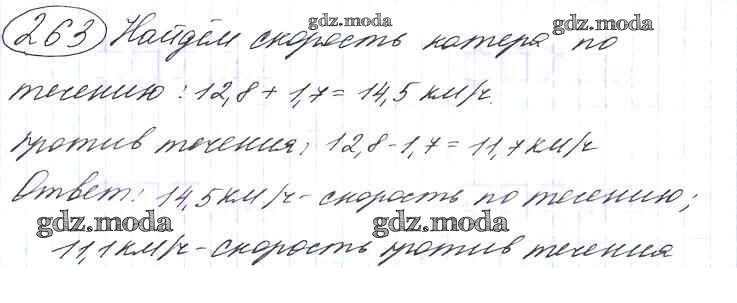 gdz.moda
gdz.moda
263 Найдём скорость катера по
течению: 12,8 + 1,7 = 14,5 км/ч.
против течения; 12,8 - 1,7 = 11,7 км/ч
Ответ: 14,5 км/ч - скорость по течению;
gdz.moda gdz.moda
11,1 км/ч - скорость против течения